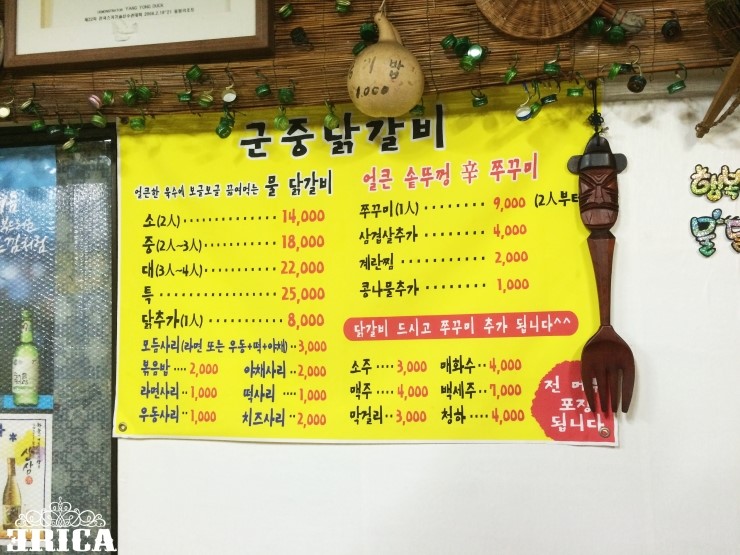 군중닭갈비
얼큰한 육수에 보글보글 끓여먹는 물 닭갈비
소(2人) ············ 14,000
중(2人~3人) ········ 18,000
대(3人~4人) ········ 22,000
특 ················ 25,000
닭추가(1人) ········ 8,000
모듬사리(라면 또는 우동+떡+야채) ·· 3,000
볶음밥 ···· 2,000 야채사리 ·· 2,000
라면사리 ·· 1,000 떡사리 ···· 1,000
우동사리 ·· 1,000 치즈사리 ·· 2,000
얼큰 솥뚜껑 辛 쭈꾸미
쭈꾸미(1人) ········ 9,000 (2人부터
삼겹살추가 ········ 4,000
계란찜 ············ 2,000
콩나물추가 ········ 1,000
닭갈비 드시고 쭈꾸미 추가 됩니다^^
소주 ···· 3,000 매화수 ·· 4,000
맥주 ···· 4,000 백세주 ·· 7,000
막걸리 ·· 3,000 청하 ···· 4,000
전 메
포장
됩니다
밥
1,000
행복
처럼
ERICA